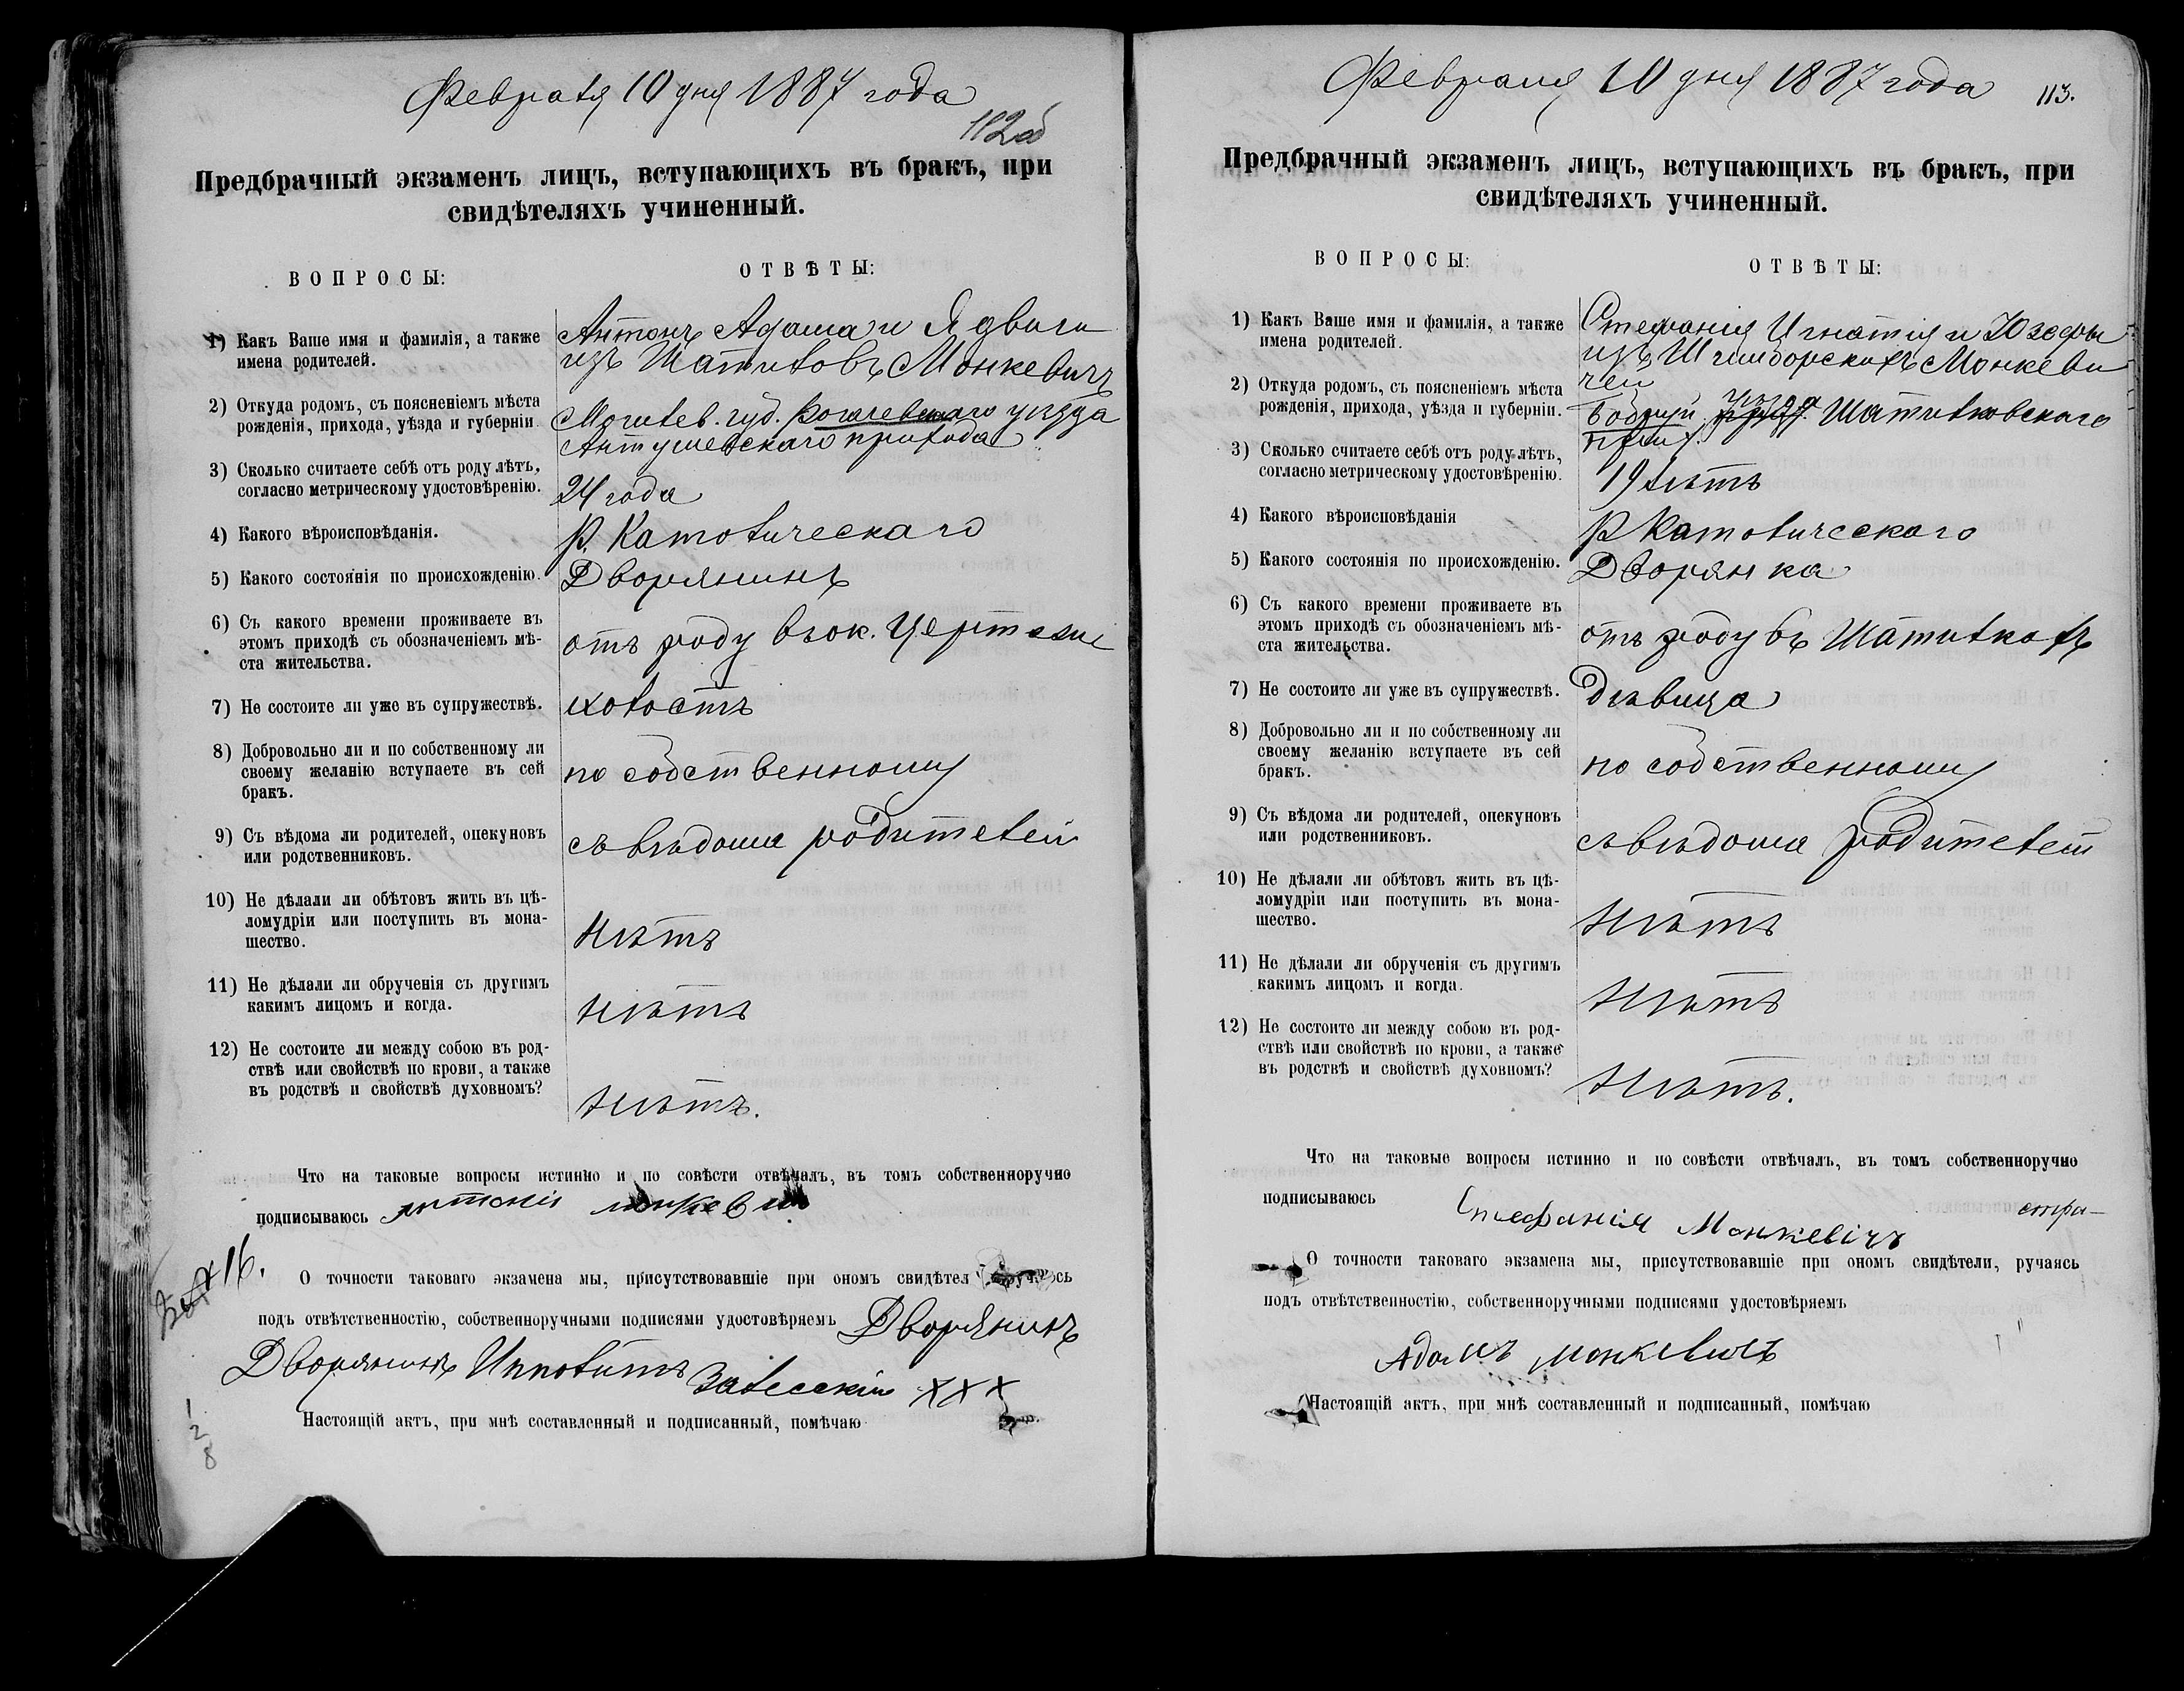 Февраля 10 дня 1887 года
112об
Предбрачный экзаменъ лицъ, вступающихъ въ бракъ, при
свидѣтеляхъ учиненный.
ВОПРОСЫ:
ОТВѢТЫ:
1) Какъ Ваше имя и фамилія, а также
имена родителей.
Антонъ Адама и Ядвиги
изъ Шатиловъ Монкевичъ
2) Откуда родомъ, съ поясненіемъ мѣста
рожденія, прихода, уѣзда и губерніи
Могилев. губ. Рогачевскаго уѣзда
Антушевскаго прихода
3) Сколько считаете себѣ отъ роду лѣтъ,
согласно метрическому удостовѣренію.
24 года
4) Какого вѣроисповѣданія.
Р. Католическаго
5) Какого состоянія по происхожденію.
Дворянинъ
6) Съ какого времени проживаете въ
этомъ приходѣ съ обозначеніемъ мѣ-
ста жительства.
отъ роду въ ок.
7) Не состоите ли уже въ супружествѣ.
холостъ
8) Добровольно ли и по собственному ли
своему желанію вступаете въ сей
бракъ.
по собственному
9) Съ вѣдома ли родителей, опекуновъ
или родственниковъ.
съ вѣдома родителей
10) Не дѣлали ли обѣтовъ жить въ цѣ-
ломудріи или поступить въ мона-
шество.
Нѣтъ
11) Не дѣлали ли обрученія съ другимъ
какимъ лицомъ и когда.
Нѣтъ
12) Не состоите ли между собою въ род-
ствѣ или свойствѣ по крови, а также
въ родствѣ и свойствѣ духовномъ?
Нѣтъ.
Что на таковые вопросы истинно и по совѣсти отвѣчалъ, въ томъ собственноручно
подписываюсь
16.
О точности таковаго экзамена мы, присутствовавшіе при ономъ свидѣтел
подъ отвѣтственностію, собственноручными подписями удостовѣряемъ Дворянинъ
Дворянинъ Ипполитъ Залесскій XXX
Настоящій актъ, при мнѣ составленный и подписанный, помѣчаю
1
2
8
Февраля 10 дня 1887 года
113.
Предбрачный экзаменъ лицъ, вступающихъ въ бракъ, при
свидѣтеляхъ учиненный.
ВОПРОСЫ:
ОТВѢТЫ:
1) Какъ Ваше имя и фамилія, а также
имена родителей.
Стефанія Игнатія и Юзефы
изъ Монкеви
чей
2) Откуда родомъ, съ поясненіемъ мѣста
рожденія, прихода, уѣзда и губерніи.
Бобруй. уѣзда Шатилковскаго
прих.
3) Сколько считаете себѣ отъ роду лѣтъ,
согласно метрическому удостовѣренію.
19 лѣтъ
4) Какого вѣроисповѣданія
Р Католическаго
5) Какого состоянія по происхожденію.
Дворянка
6) Съ какого времени проживаете въ
этомъ приходѣ съ обозначеніемъ мѣ-
ста жительства.
отъ роду въ Шатилкахъ
7) Не состоите ли уже въ супружествѣ.
Дѣвица
8) Добровольно ли и по собственному ли
своему желанію вступаете въ сей
бракъ.
по собственному
9) Съ вѣдома ли родителей, опекуновъ
или родственниковъ.
съ вѣдома родителей
10) Не дѣлали ли обѣтовъ жить въ цѣ-
ломудріи или поступить въ мона-
шество.
Нѣтъ
11) Не дѣлали ли обрученія съ другимъ
какимъ лицомъ и когда.
Нѣтъ
12) Не состоите ли между собою въ род-
ствѣ или свойствѣ по крови, а также
въ родствѣ и свойствѣ духовномъ?
Нѣтъ.
Что на таковые вопросы истинно и по совѣсти отвѣчалъ, въ томъ собственноручно
подписываюсь
Стефанія Монкевічъ
О точности таковаго экзамена мы, присутствовавшіе при ономъ свидѣтели, ручаясь
подъ отвѣтственностію, собственноручными подписями удостовѣряемъ
Адамъ Монкевичъ
Настоящій актъ, при мнѣ составленный и подписанный, помѣчаю